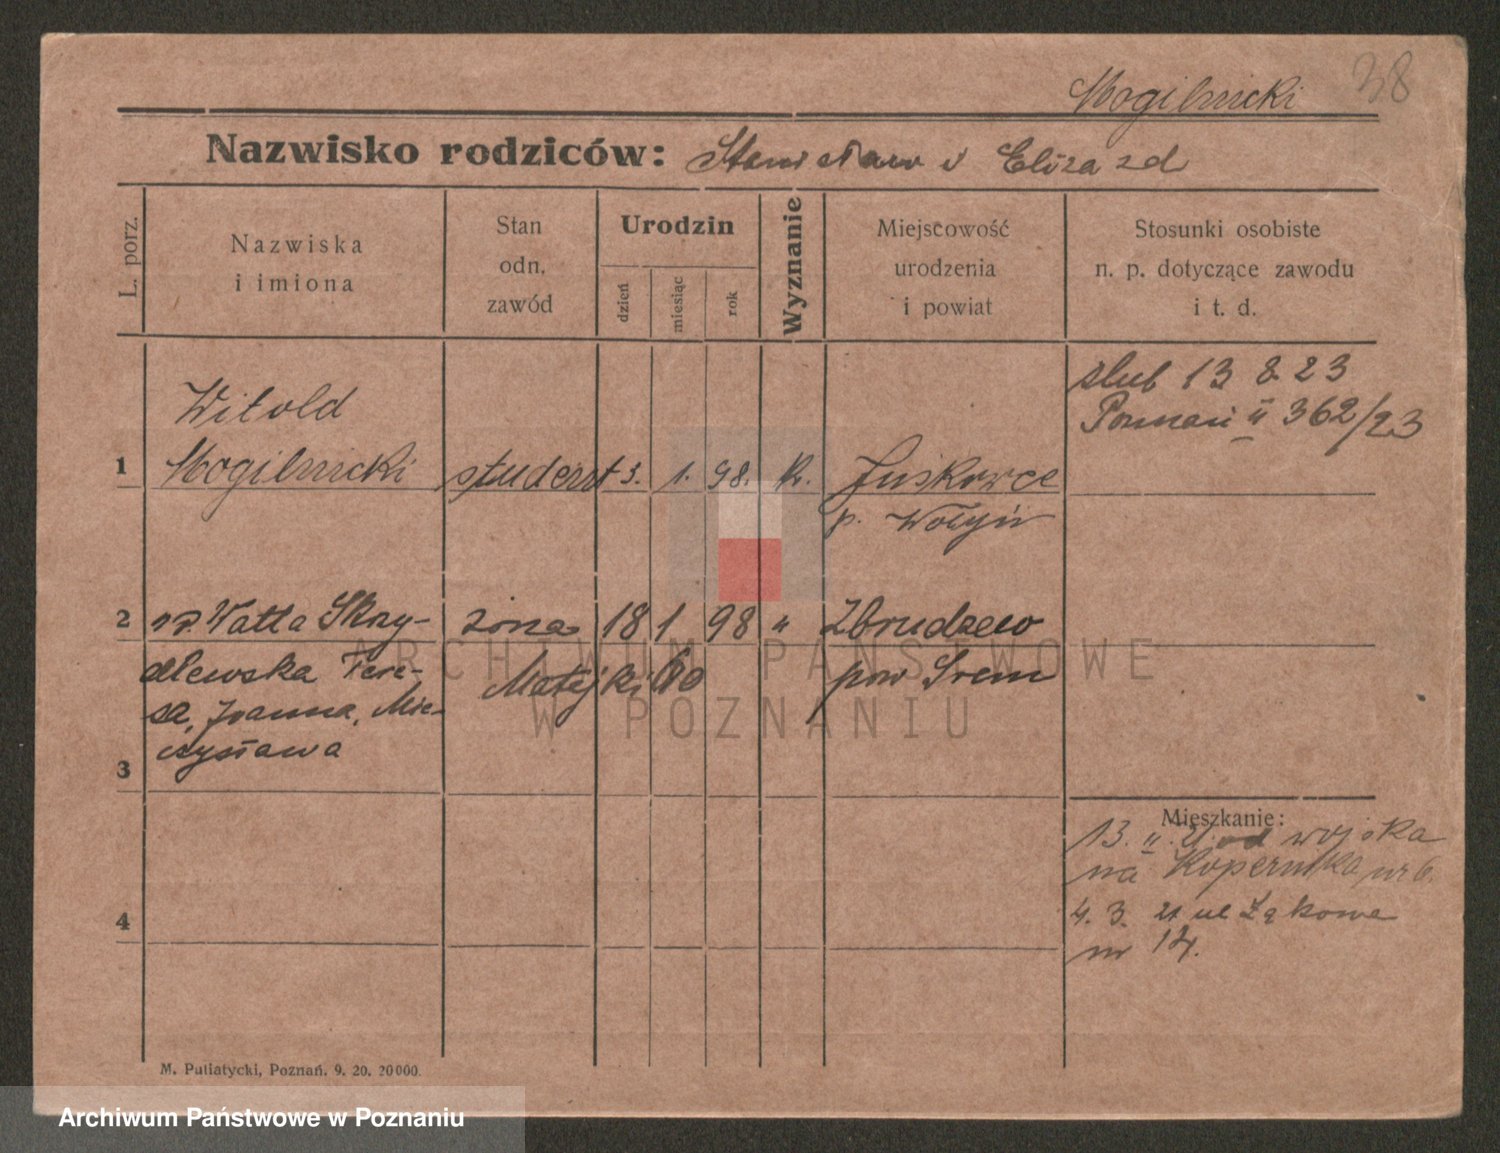 38
Mogilnicki
Nazwisko rodziców: Stanisław i Eliza zd
L. porz.
Nazwiska
i imiona
Stan
odn.
zawód
Urodzin
dzień
miesiąc
rok
Wyznanie
Miejscowość
urodzenia
i powiat
Stosunki osobiste
n. p. dotyczące zawodu
i t. d.
1
Witold
Mogilnicki
student
3. 1. 98.
k.
Juskowce
p. Wołyń
ślub 13 8 23
Poznań II 362/23
2
Watta Skrzy-
dlewska Tere-
sa, Joanna, Mie-
czysława
żona
Matejki 60
18 1 98
"
Zbrudzewo
pow Śrem
3
4
Mieszkanie:
13. II. 21. od wojska
na Kopernika nr 6.
4. 3. 21 ul Łąkowa
nr 14.
M. Putiatycki, Poznań. 9. 20. 20000.
ARCHIWUM PAŃSTWOWE
W POZNANIU
Archiwum Państwowe w Poznaniu